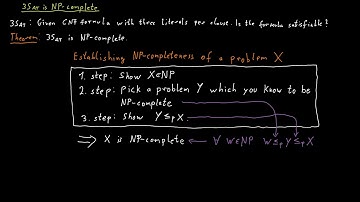 3SAT is NP-complete
3SAT: Given CNF formula with three literals per clause. Is the formula satisfiable?
Theorem: 3SAT is NP-complete.
Establishing NP-completeness of a problem X
1. step: Show X∈NP
2. step: Pick a problem Y which you know to be
NP-complete
3. step: Show Y ≤p X.
⇒ X is NP-complete ← ∀ W∈NP W ≤p Y ≤p X